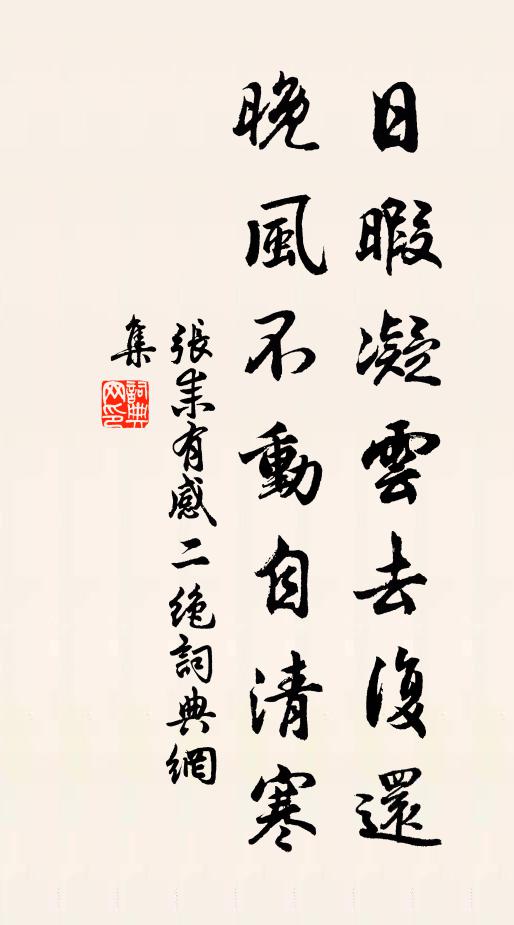 日暇凝雲去復還
晚風不動自清寒
張耒有感二绝詞典網
集
詞典
网印